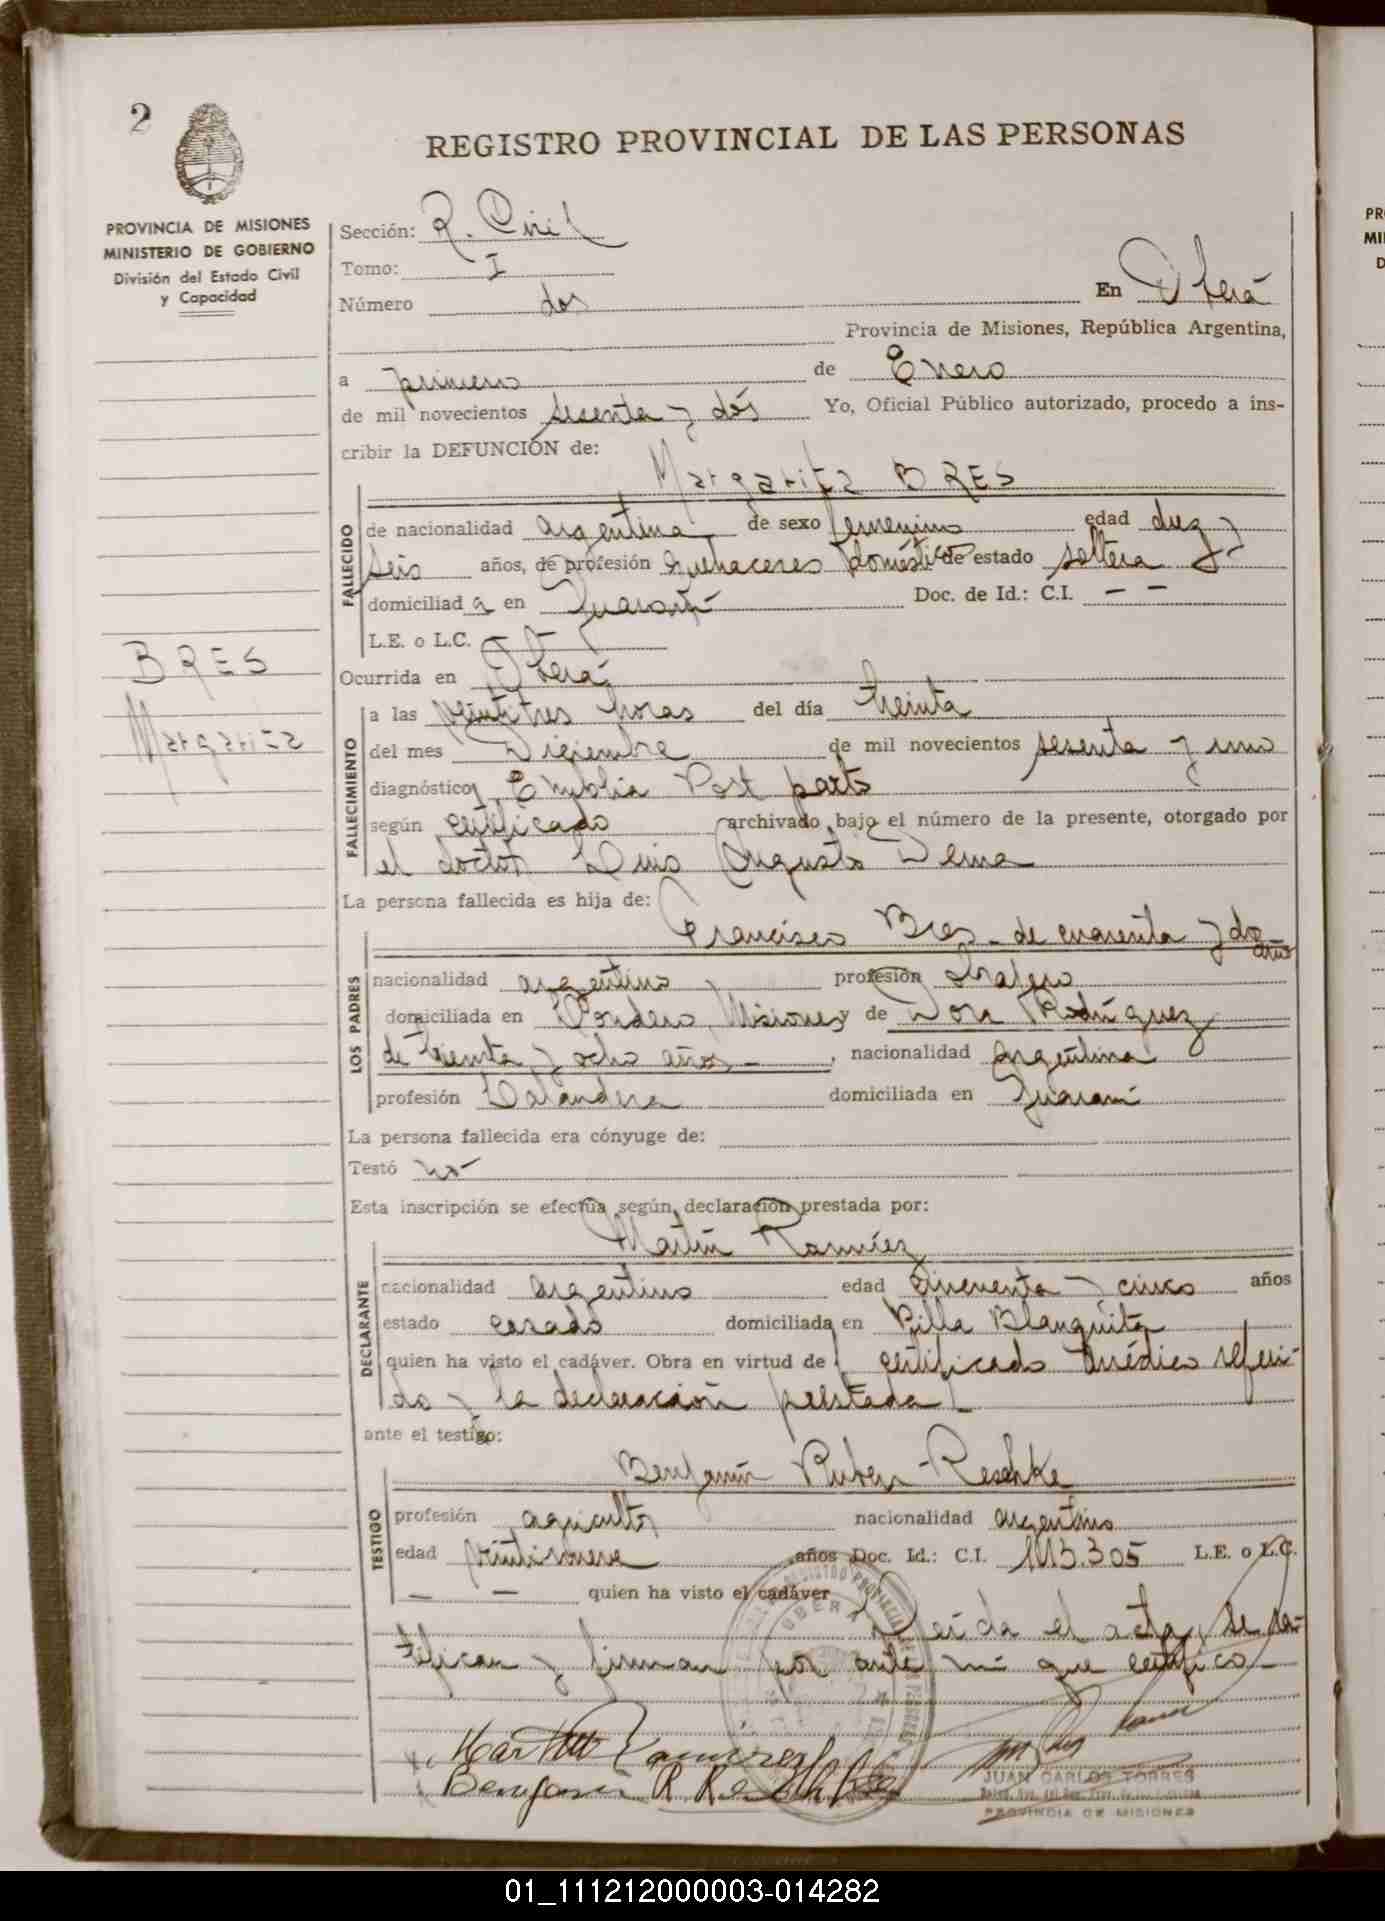 2
REGISTRO PROVINCIAL DE LAS PERSONAS
PROVINCIA DE MISIONES
MINISTERIO DE GOBIERNO
División del Estado Civil
y Capacidad
Sección: R. Civil
Tomo: I
Número dos En Oberá
Provincia de Misiones, República Argentina,
a primero de Enero
de mil novecientos sesenta y dós Yo, Oficial Público autorizado, procedo a ins-
cribir la DEFUNCIÓN de:
Margarita BRES
FALLECIDO
de nacionalidad argentina de sexo femenino edad diez y
seis años, de profesión quehaceres domésticos de estado soltera
domiciliad a en Guaraní Doc. de Id.: C.I. — —
L.E. o L.C.
BRES
Margarita
Ocurrida en Oberá
FALLECIMIENTO
a las veintitres horas del día treinta
del mes Diciembre de mil novecientos sesenta y uno
diagnóstico Embolia Post parto
según certificado archivado bajo el número de la presente, otorgado por
el doctor Luis Augusto Derna
La persona fallecida es hija de:
Francisco Bres - de cuarenta y dos años
LOS PADRES
nacionalidad argentino profesión obrajero
domiciliada en Misiones y de Dora Rodríguez
de treinta y ocho años - , nacionalidad argentina
profesión Lavandera domiciliada en Guaraní
La persona fallecida era cónyuge de:
Testó no -
Esta inscripción se efectúa según declaración prestada por:
Martín Ramírez
DECLARANTE
nacionalidad argentino edad cincuenta y cinco años
estado casado domiciliada en Villa Blanquita
quien ha visto el cadáver. Obra en virtud de certificado médico referi-
do y la declaración prestada -
ante el testigo:
Benjamín Ruben Reschke
TESTIGO
profesión agricultor nacionalidad argentino
edad veintinueve años Doc. Id.: C.I. 113.305 L.E. o L.C.
— — quien ha visto el cadáver
Leída el acta, se ra-
tifican y firman por ante mí que certifico -
Martin Ramirez
Benjamin R. Reschke
OBERA
JUAN CARLOS TORRES
PROVINCIA DE MISIONES
01_111212000003-014282